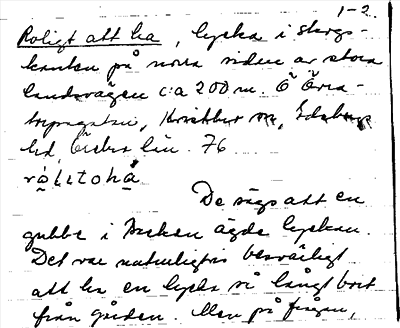 1-2.
Roligt att ha, lycka i skogs-
kanten på norra sidan av stora
landsvägen c:a 200 m. Ö Öna-
torpsgatan, Edsbergs
hd, Örebro län. 76
rò̤litohà
De sägs att en
gubbe i backen ägde lyckan.
Det var naturligtvis besvärligt
att ha en lycka så långt bort
från gården. Men på frågan,